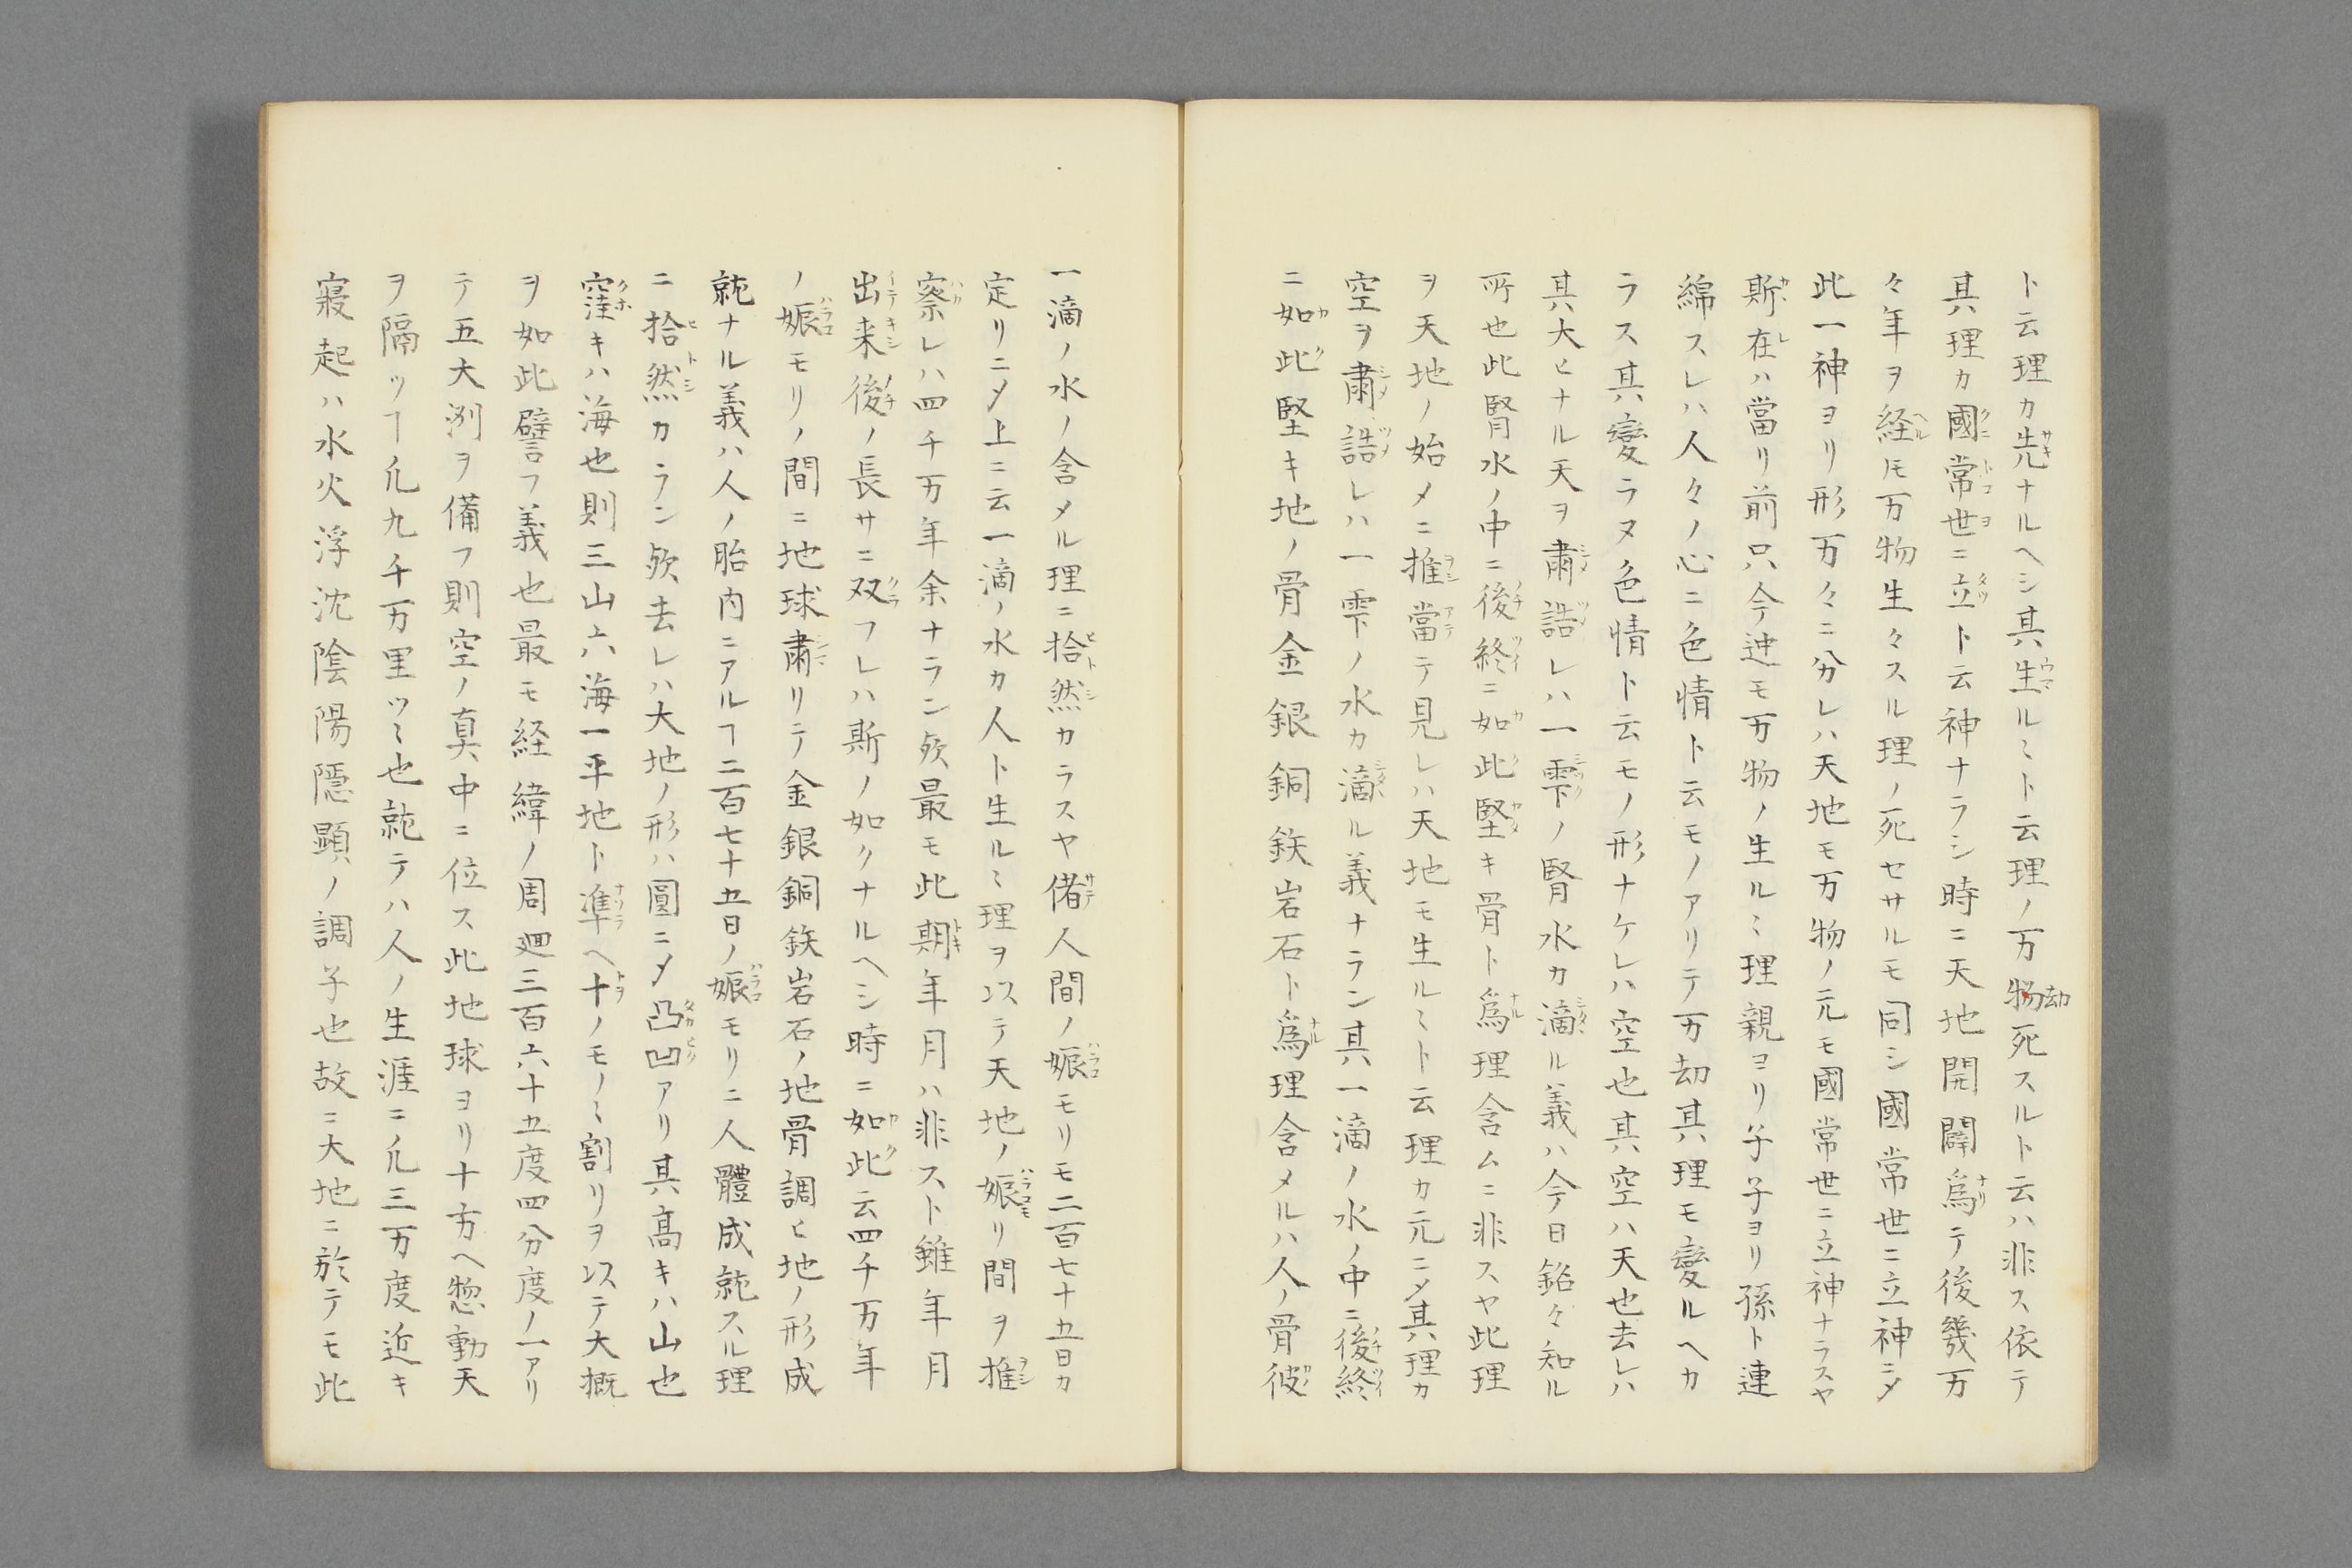 ト云理カ先ナルヘシ其生ルミト云理ノ万物死スルト云ハ非ス依テ
其理カ國常世ニ立ト云神ナラシ時ニ天地開闢爲テ後幾万
々年ヲ経ルモ万物生々スル理ノ死セサルモ同シ國常世ニ立神ニメ
此一神ヨリ形万々ニ分レハ天地モ万物ノ元モ國常世ニ立神ナラスヤ
斯在ハ當リ前只今迚モ万物ノ生ルミ理親ヨリ子子ヨリ孫ト連
綿スレハ人々ノ心ニ色情ト云モノアリテ万劫其理モ變ルヘカ
ラス其變ラヌ色情ト云モノ形ナケレハ空也其空ハ天也去レハ
其大ヒナル天ヲ肅誥レハ一雫ノ腎水カ滴ル義ハ今日銘々知ル
所也此腎水ノ中ニ後終ニ如此堅キ骨ト爲理含ムニ非スヤ此理
ヲ天地ノ始メニ推當テ見レハ天地モ生ルミト云理カ元ニメ其理カ
空ヲ肅誥レハ一雫ノ水カ滴ル義ナラン其一滴ノ水ノ中ニ後終
ニ如此堅キ地ノ骨金銀銅鉄岩石ト爲理含メルハ人ノ骨彼
一滴ノ水ノ含メル理ニ拾然カラスヤ偖人間ノ娠モリモ二百七十五日カ
定リニメ上ニ云一滴ノ水カ人ト生ルミ理ヲ以テ天地ノ娠リ間ヲ推
察レハ四千万年余ナラン欤最モ此期年月ハ非スト雖年月
出来後ノ長サニ双フレハ斯ノ如クナルヘシ時ニ如此云四千万年
ノ娠モリノ間ニ地球肅リテ金銀銅鉄岩石ノ地骨調ヒ地ノ形成
就ナル義ハ人ノ胎内ニアルヿ二百七十五日ノ娠モリニ人體成就スル理
ニ拾然カラン欤去レハ大地ノ形ハ圓ニメ凸凹アリ其高キハ山也
窪キハ海也則三山六海一平地ト準ヘ十ノモノミ割リヲ以テ大概
ヲ如此譬フ義也最モ経緯ノ周廻三百六十五度四分度ノ一アリ
テ五大洲ヲ備フ則空ノ真中ニ位ス此地球ヨリ十方ヘ惣動天
ヲ隔ツヿ凢九千万里ツミ也就テハ人ノ生涯ニ凢三万度近キ
寢起ハ水火浮沈陰陽隱顕ノ調子也故ニ大地ニ於テモ此